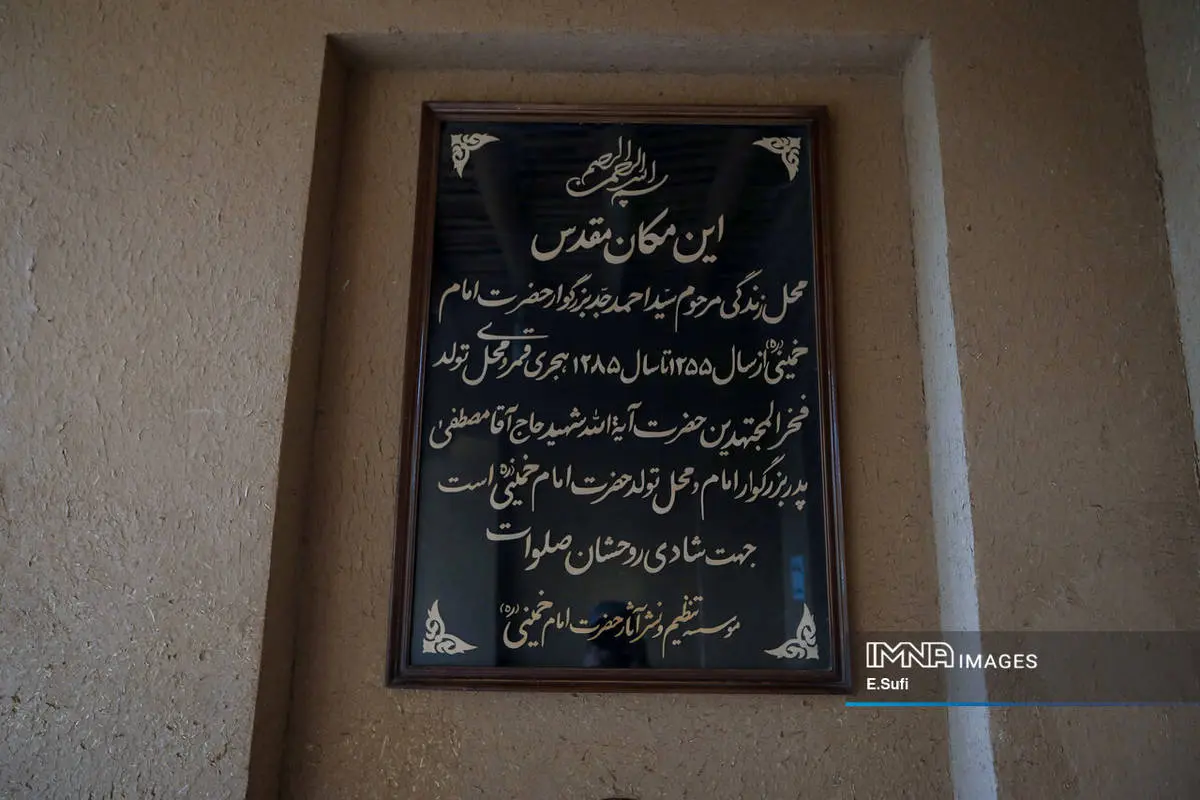 بسم الله الرحمن الرحیم
این مکان مقدس
محل زندگی مرحوم سیّد احمد جدّ بزرگوار حضرت امام
خمینی(ره) از سال ۱۲۵۵ تا سال ۱۲۸۵ هجری قمری و محل تولد
فخر المجتهدین حضرت آیة الله شهید حاج آقا مصطفی
پدر بزرگوار امام و محل تولد حضرت امام خمینی(ره) است
جهت شادی روحشان صلوات
موسسه تنظیم و نشر آثار حضرت امام خمینی(ره)
IMNA IMAGES
E.Sufi